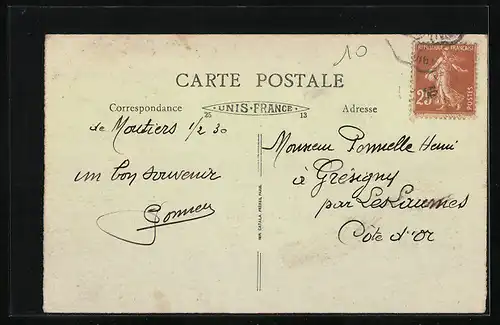 10
RÉPUBLIQUE FRANÇAISE
25
POSTES
CARTE POSTALE
Correspondance
UNIS-FRANCE
25
13
Adresse
de Moutiers 1/2 30
un bon souvenir
Monsieur Ponnelle Henri
à Grésigny
par Les Laumes
Côte d'Or
IMP. CATALA FRÈRES, PARIS